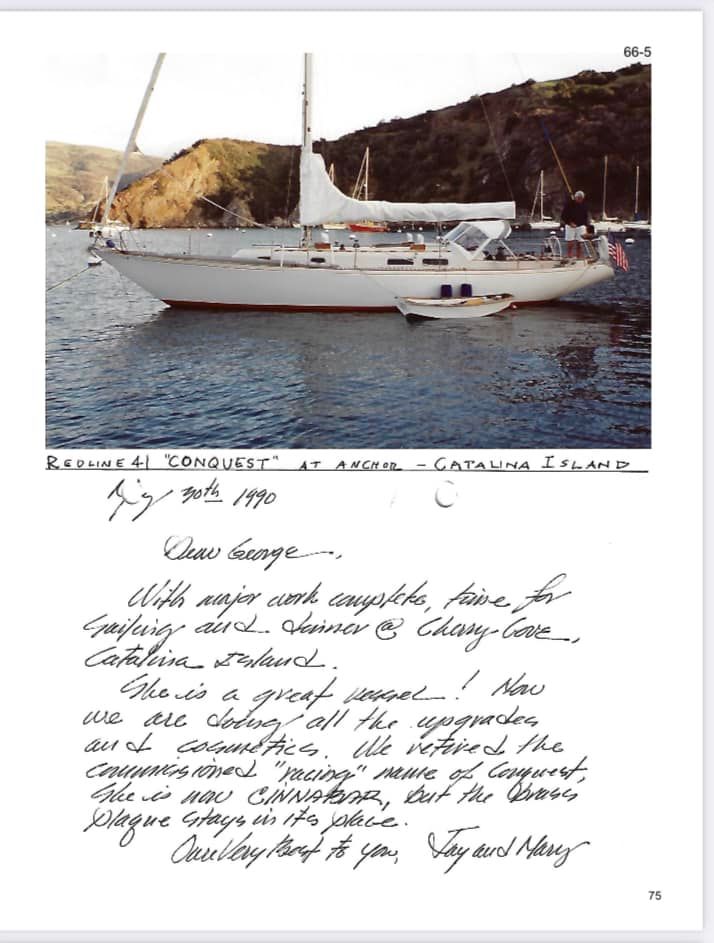 66-5
REDLINE 41 "CONQUEST" AT ANCHOR - CATALINA ISLAND
30th 1990
Dear George,
With major work complete, time for
sailing and dinner @ Cherry Cove,
Catalina Island.
She is a great vessel! Now
we are doing all the upgrades
and cosmetics. We retired the
commissioned "racing" name of Conquest,
she is now CINNABAR, but the brass
plaque stays in its place.
Our Very Best to you, Jay and Mary
75